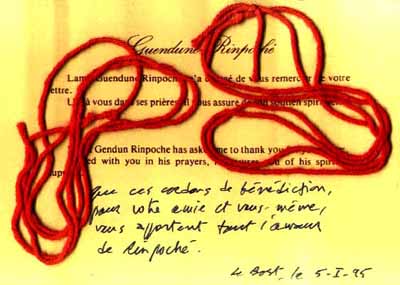 Guendune Rinpoché
Lama Guendune Rinpoché m'a chargé de vous remercier de votre
lettre.
à vous dans ses prières, il vous assure de son soutien spirituel.
Gendun Rinpoche has asked me to thank you
with you in his prayers, of his
que ces cordons de bénédiction,
pour votre amie et vous-même,
vous apportent tout l'amour
de Rinpoché.
Le Bost, le 5-I-95